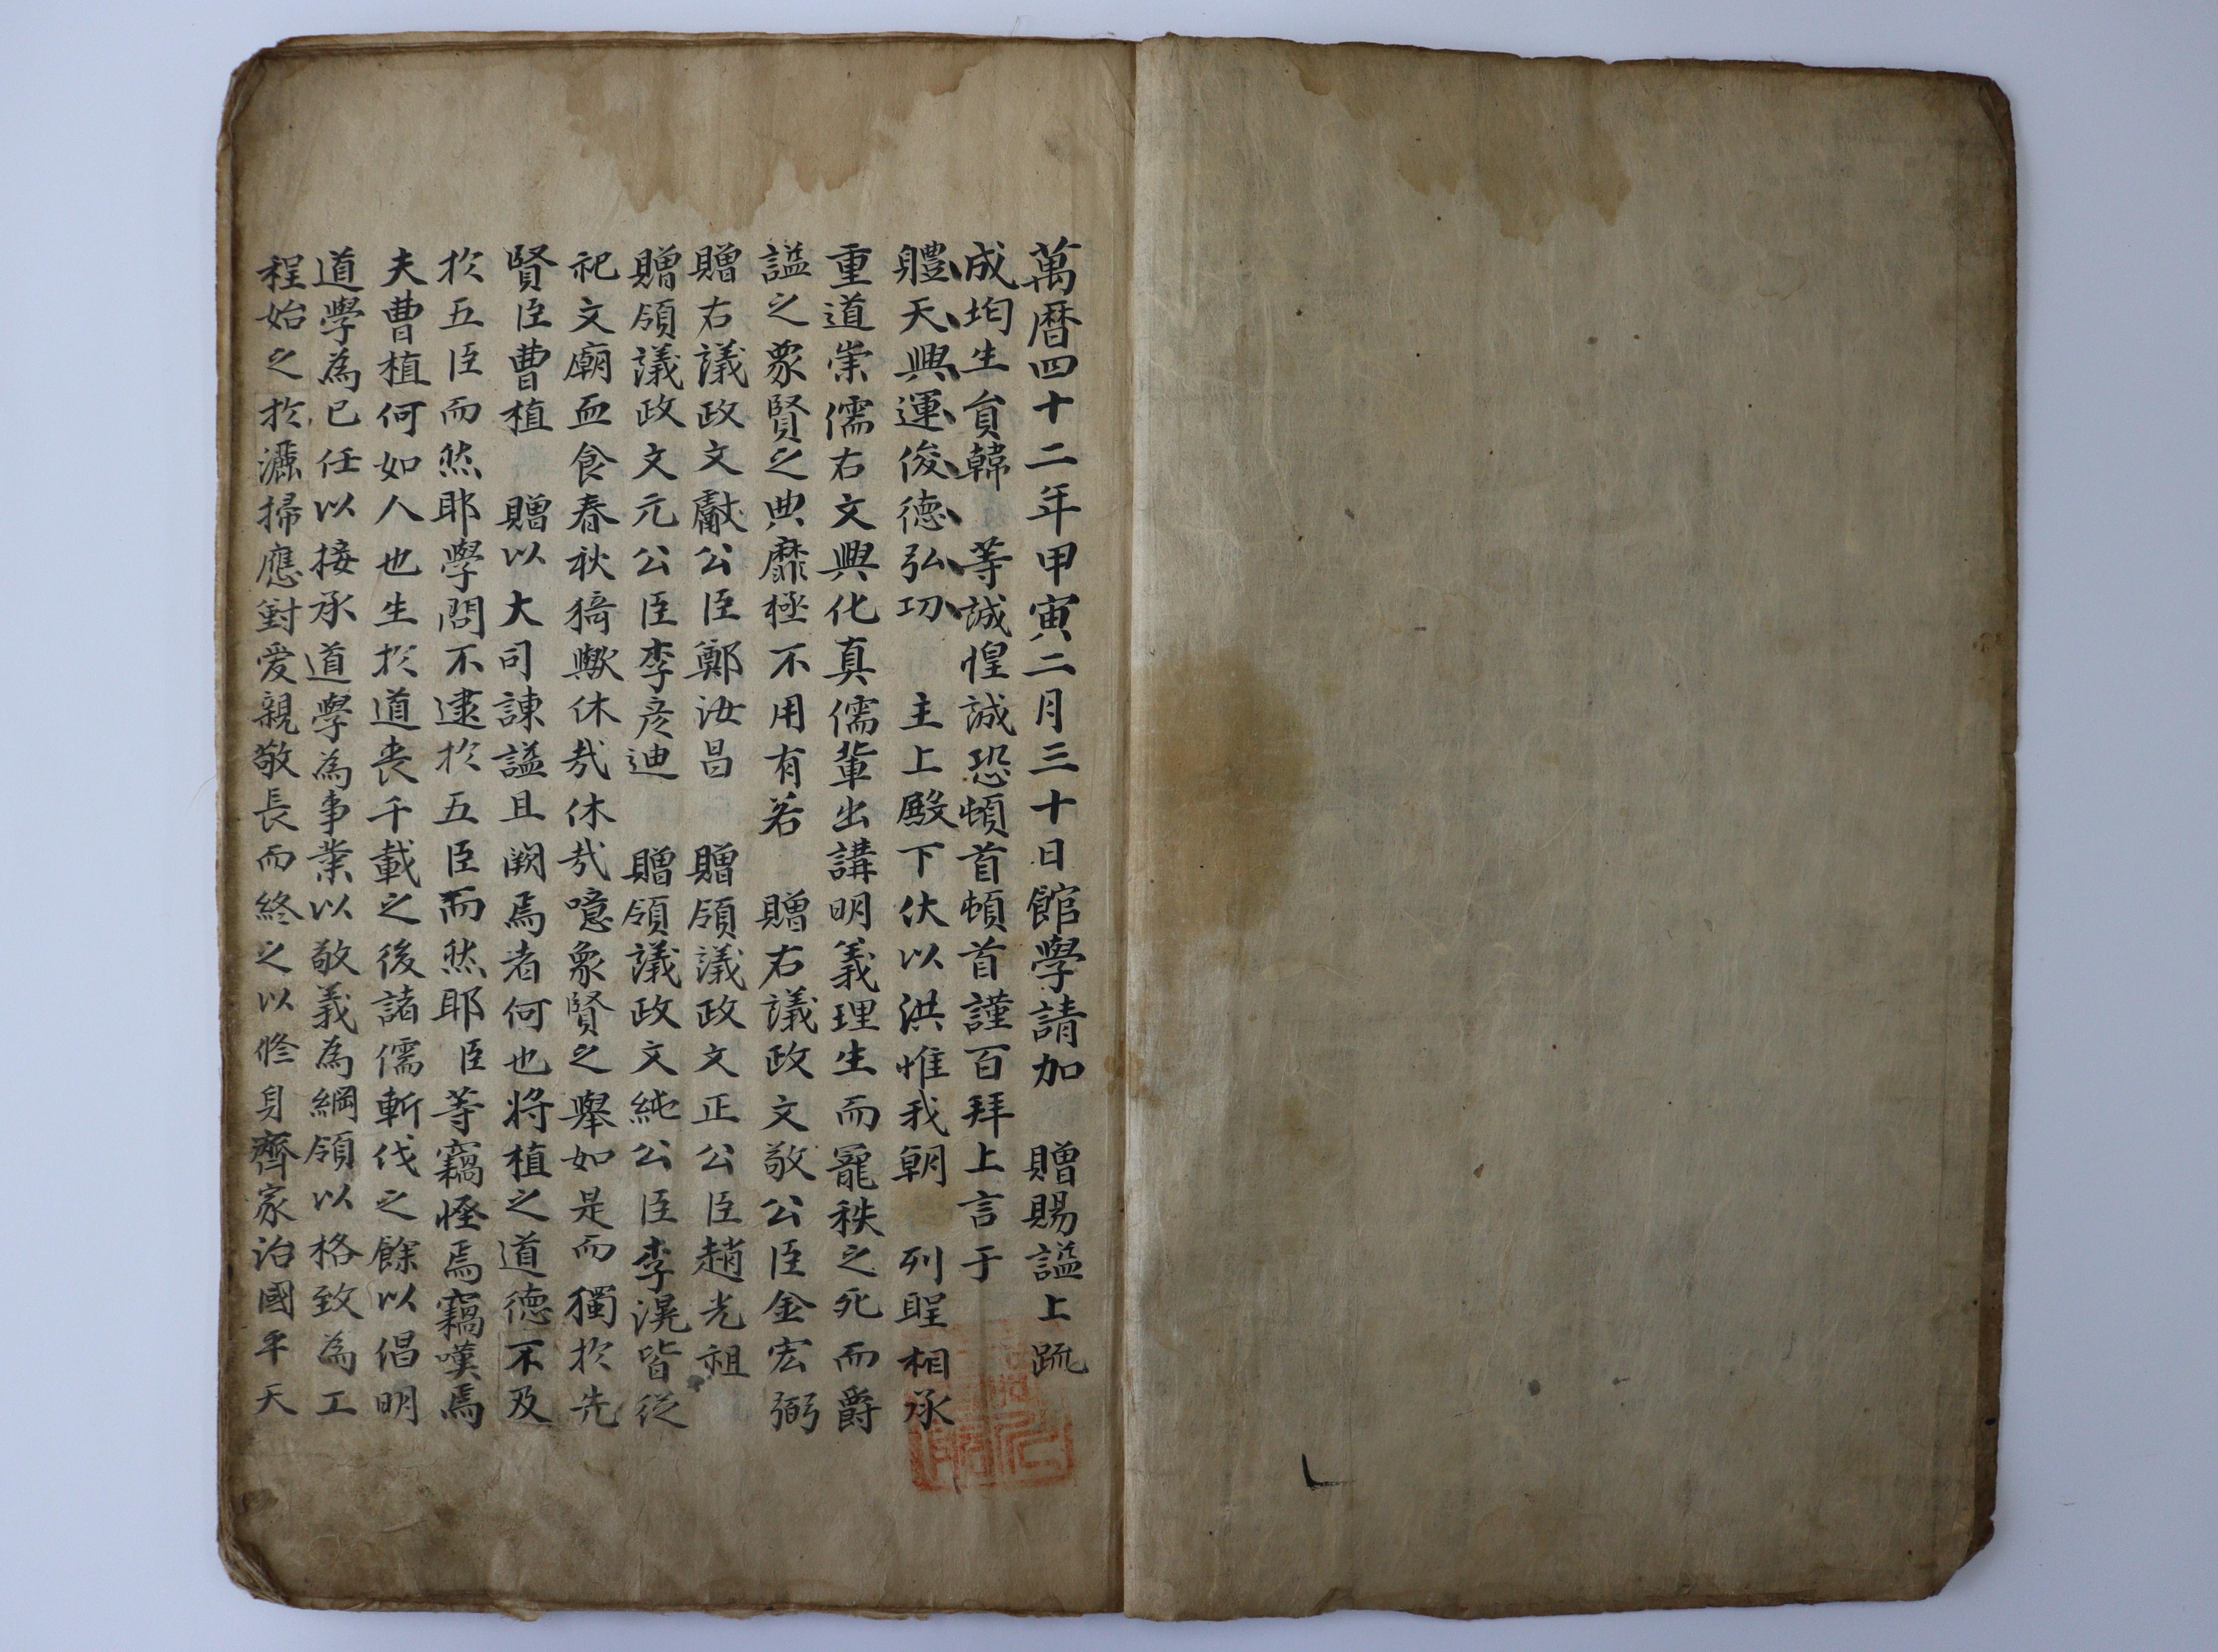 萬曆四十二年甲寅二月三十日館學請加　贈賜謚上䟽
成均生貟韓　等誠惶誠恐頓首頓首謹百拜上言于
軆天興運俊德弘功　主上殿下伏以洪惟我朝　列聖相承
重道崇儒右文興化真儒輩出講明義理生而寵秩之死而爵
謚之象賢之典靡極不用有若　贈右議政文敬公臣金宏弼
贈右議政文獻公臣鄭汝昌　贈領議政文正公臣趙光祖
贈領議政文元公臣李彦迪　贈領議政文純公臣李滉皆從
祀文廟血食春秋猗歟休㢤休㢤噫象賢之舉如是而獨於先
賢臣曹植　贈以大司諫謚且闕焉者何也將植之道德不及
於五臣而然耶學問不逮於五臣而然耶臣等竊怪焉竊嘆焉
夫曹植何如人也生於道喪千載之後諸儒斬伐之餘以倡明
道學為己任以接承道學為事業以敬義為綱領以格致為工
程始之於灑掃應對愛親敬長而終之以修身齊家治國平天